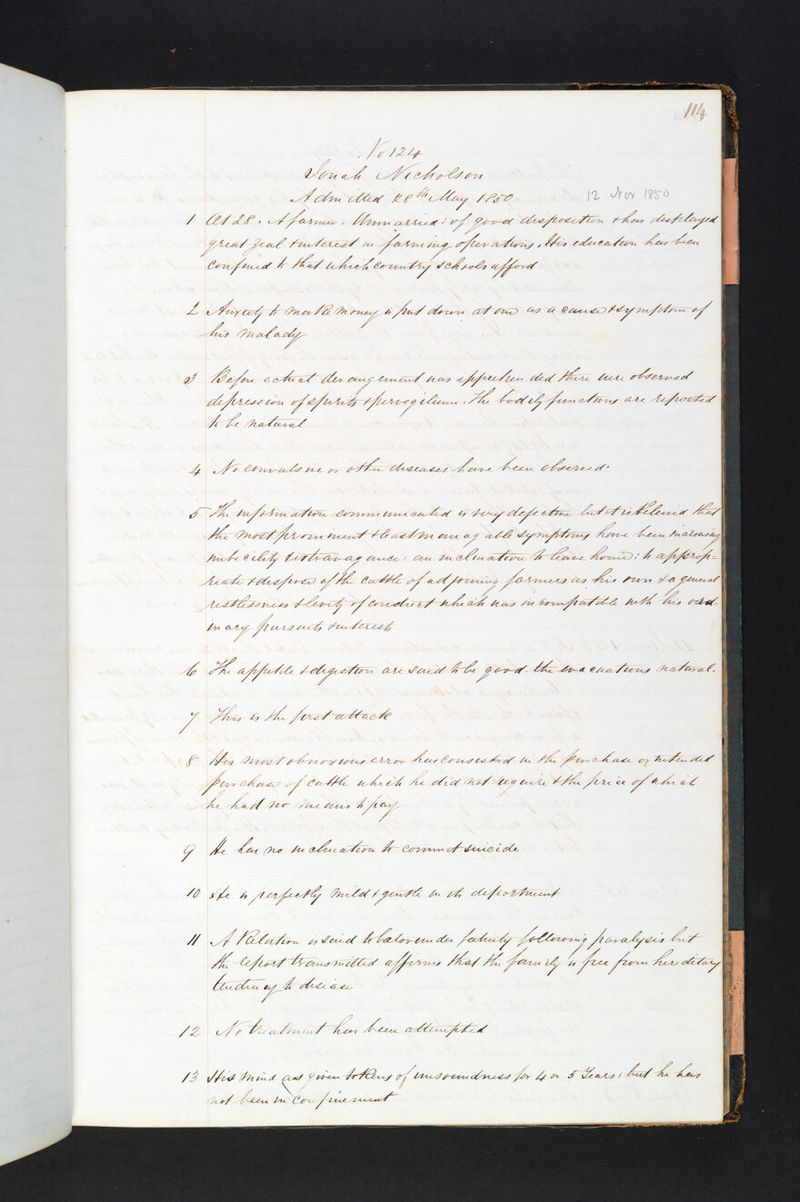 114
No 124
Jonah Nicholson
Admitted 28th May 1850
12 Nov 1850
1 Aet 28. A farmer. Unmarried: of good disposition & has displayed
great zeal & interest in farming operations. His education has been
confined to that which country schools afford
2 Anxiety to make money is put down at one as a cause & symptom of
his malady
3 Before actual derangement was apprehended there were observed
depression of spirits & pervigilium. The bodily functions are reported
to be natural
4 No convulsive or other diseases have been observed.
5 The information communicated is very defective but it is believed that
the most prominent & least manageable symptoms have been increasing
imbecility & extravagance: an inclination to leave home: to approp-
riate & dispose of the cattle of adjoining farmers as his own & a general
restlessness & levity of conduct which was incompatible with his ord-
inary pursuits & interests
6 The appetite & digestion are said to be good. the evacuations natural.
7 This is the first attack
8 His most obnoxious error has consisted in the purchase or intended
purchase of cattle which he did not require & the price of which
he had no means to pay
9 He has no inclination to commit suicide
10 He is perfectly mild & gentle in his deportment
11 A Relation is said to labor under fatuity following paralysis but
the report transmitted affirms that the family is free from hereditary
tendency to disease
12 No treatment has been attempted
13 His mind has given tokens of unsoundness for 4 or 5 Years: but he has
not been in confinement